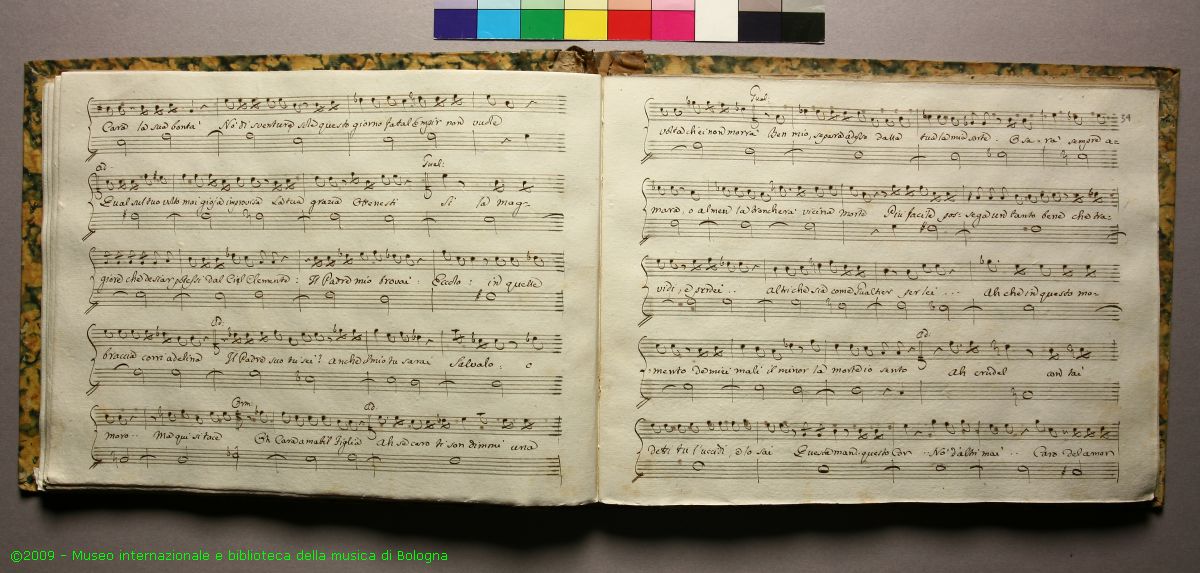 Cara la sua bontà No' di sventura solo questo giorno fatal empir non vuole
Ad. Gual:
E val sul tuo volto mai gioja improvisa La tua grazia Ottenesti Sì la mag-
giore che destar potessi dal Ciel Clemente: Il Padre mio trovai: Eccolo: in quelle
Ad.
braccia corri adelina Il Padre suo tu sei? anche il mio tu sarai Salvalo: o
Erm: ad.
moro.. Ma qui si tace Eh Cara amabil Figlia Ah se caro ti son dimmi una
34
Gual:
volta ch'ei non morrà Ben mio, separa adesso dalla tua la mia sorte. O sarà sempre a-
mara, o almen la troncherà vicina morte Più facile sos- segue un tanto bene che tra-
vidi, e perdei... Altri che sia come Gualtier per lei... Ah che in questo mo-
Ad.
-mento De miei mali il minor la morte io sento Ah crudel con tai
Detti tu l'uccidi, e lo sai Questa man.. questo Cor.. No' d'altri mai.. Caro del amor
©2009 - Museo internazionale e biblioteca della musica di Bologna